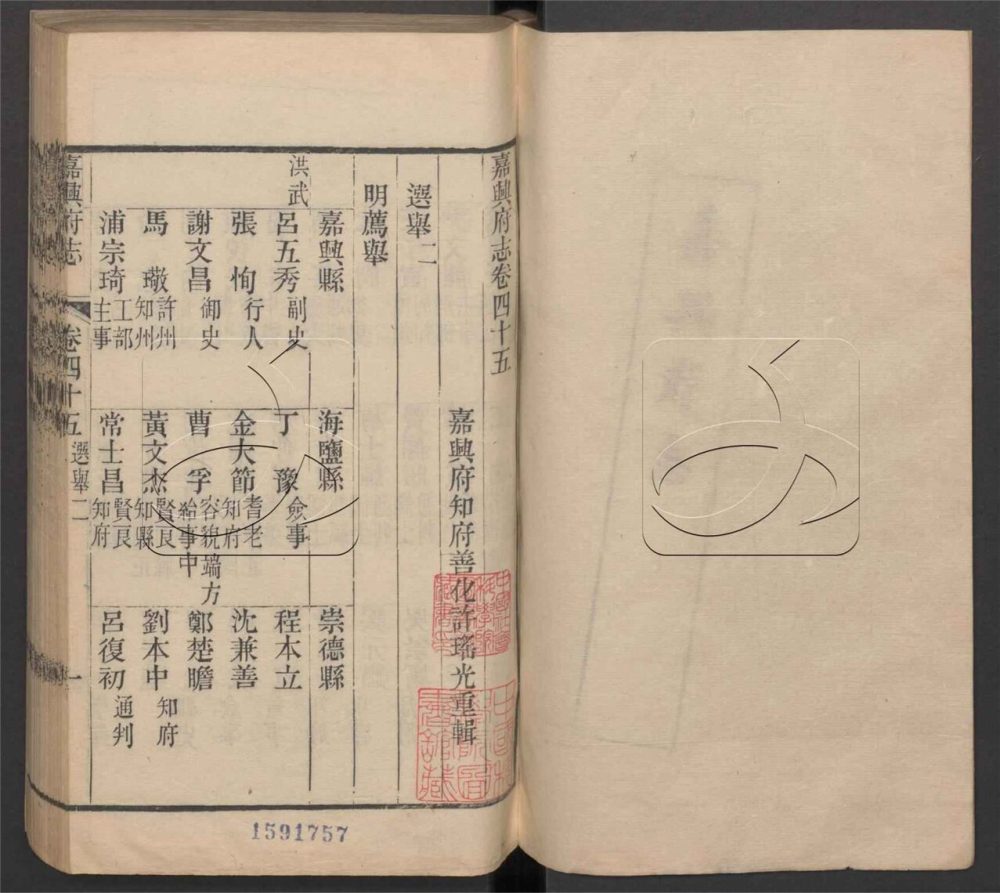 嘉興府志卷四十五
嘉興府知府善化許瑤光重輯
選舉二
明薦舉
嘉興縣 海鹽縣 崇德縣
洪武 呂五秀 副史 丁豫 僉事 程本立
張恂 行人 金大節 耆老知府 沈兼善
謝文昌 御史 曹孚 容貌端方給事中 鄭楚瞻
馬璥 許州知州 黃文杰 賢良知縣 劉本中 知府
浦宗琦 工部主事 常士昌 賢良知府 呂復初 通判
嘉興府志 卷四十五 選舉二 一
1591757